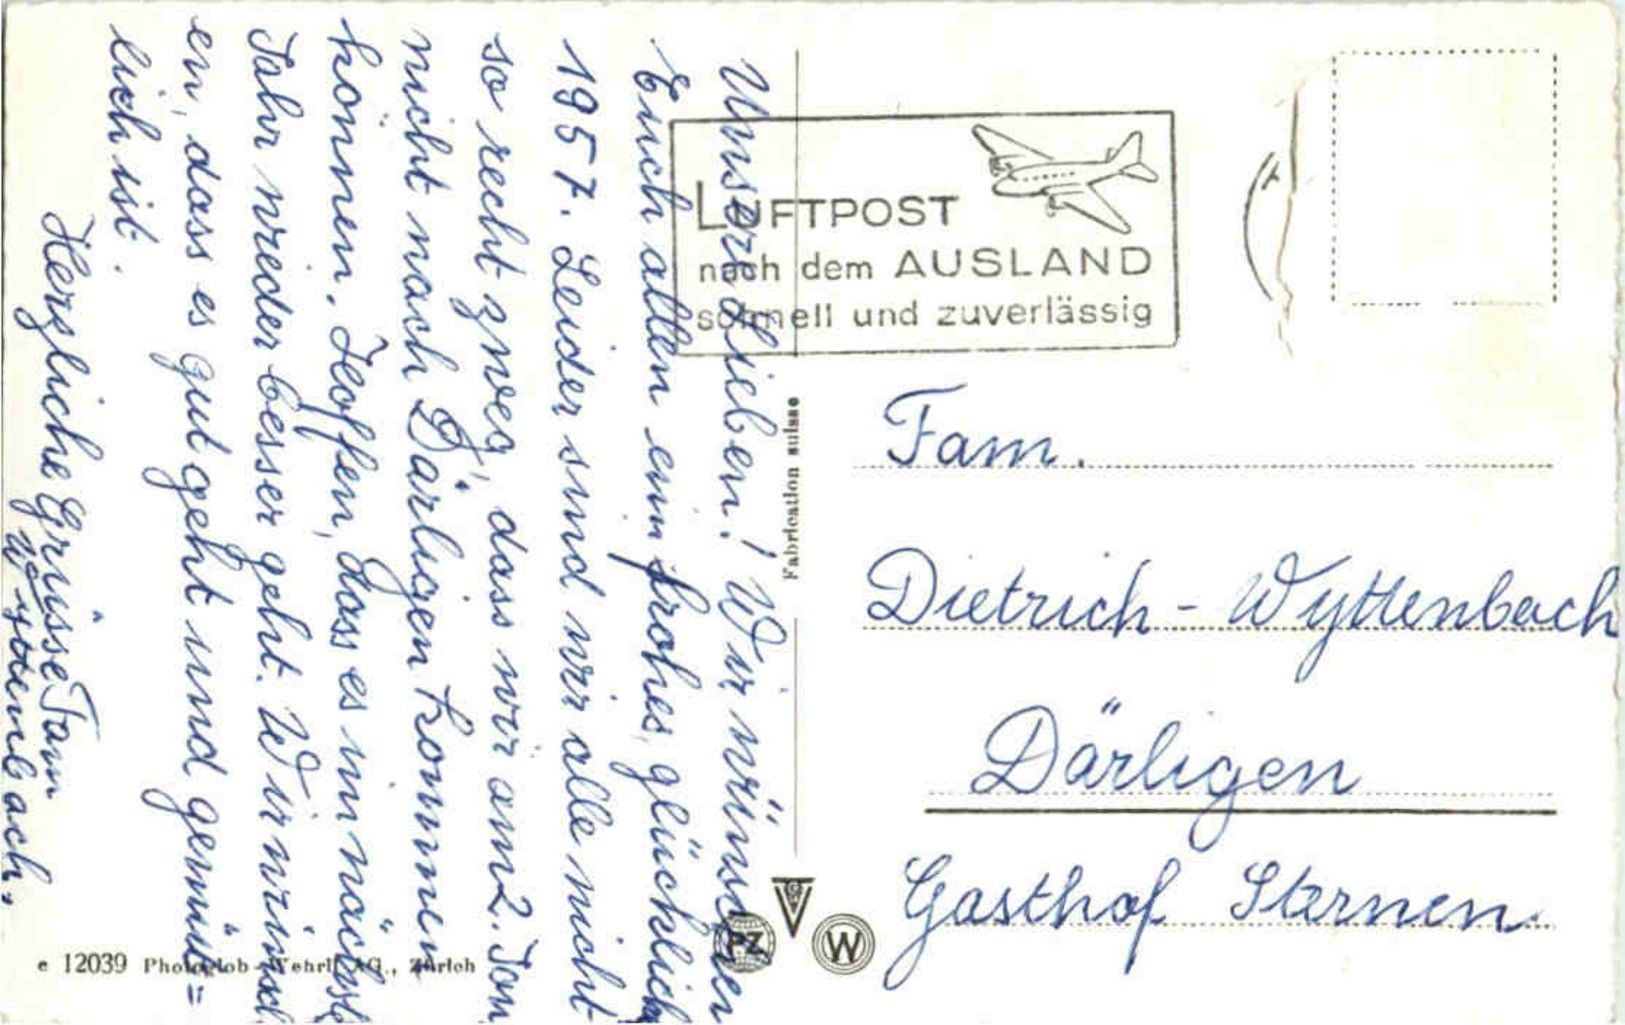 Unsere Lieben! Wir wünschen
Euch allen ein frohes, glücklich
1957. Leider sind wir alle nicht
so recht zweg, dass wir am 2. Jan
nicht nach Därligen kommen
können. Hoffen, dass es im nächst
Jahr wieder besser geht. Wir wünsch
en, dass es gut geht und gemüt=
lich ist.
Herzliche Grüsse Fam
Wyttenbach.
LUFTPOST
nach dem AUSLAND
schnell und zuverlässig
Fabrication suisse
Fam.
Dietrich - Wyttenbach
Därligen
Gasthof Sternen.
PZ
W
e 12039 Photoglob-Wehrli AG., Zürich